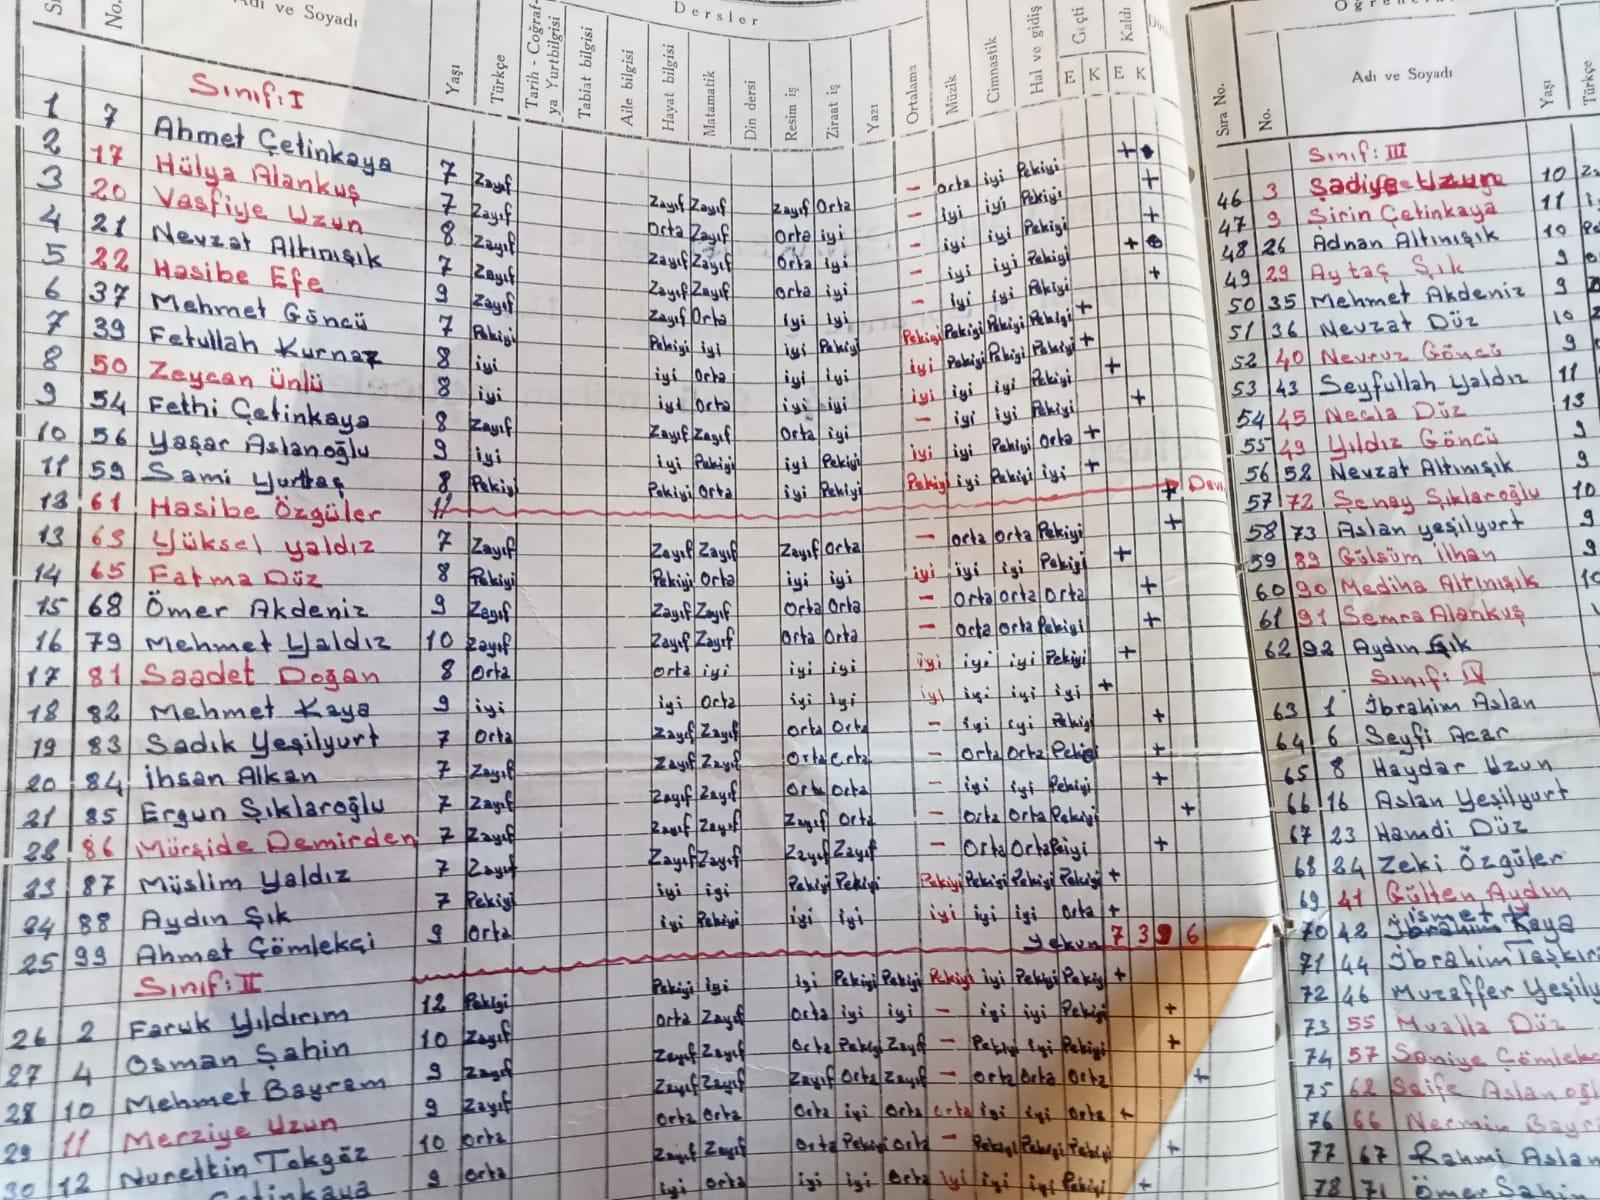 Adı ve Soyadı
Dersler
No.
Yaşı
Türkçe
Tarih - Coğraf-
ya Yurtbilgisi
Tabiat bilgisi
Aile bilgisi
Hayat bilgisi
Matamatik
Din dersi
Resim iş
Ziraat iş
Yazı
Ortalama
Müzik
Cimnastik
Hal ve gidiş
Geçti
Kaldı
E K E K
Sınıf: I
1 7 Ahmet Çetinkaya 7 Zayıf Zayıf Zayıf Zayıf Orta - Orta iyi Pekiyi +
2 17 Hülya Alankuş 7 Zayıf Orta Zayıf Orta iyi - iyi iyi Pekiyi +
3 20 Vasfiye Uzun 8 Zayıf Zayıf Zayıf Orta iyi - iyi iyi Pekiyi +
4 21 Nevzat Altınışık 7 Zayıf Zayıf Zayıf Orta iyi - iyi iyi Pekiyi +
5 22 Hasibe Efe 9 Zayıf Zayıf Orta iyi iyi - iyi iyi Pekiyi +
6 37 Mehmet Göncü 7 Pekiyi Pekiyi iyi iyi Pekiyi Pekiyi Pekiyi Pekiyi Pekiyi +
7 39 Fetullah Kurnaz 8 iyi iyi Orta iyi iyi iyi Pekiyi Pekiyi Pekiyi +
8 50 Zeycan Ünlü 8 iyi iyi Orta iyi iyi iyi iyi iyi Pekiyi +
9 54 Fethi Çetinkaya 8 Zayıf Zayıf Zayıf Orta iyi - iyi iyi Pekiyi +
10 56 Yaşar Aslanoğlu 9 iyi iyi Pekiyi iyi Pekiyi iyi iyi Pekiyi Orta +
11 59 Sami Yurttaş 8 Pekiyi Pekiyi Orta iyi Pekiyi Pekiyi iyi Pekiyi iyi +
13 61 Hasibe Özgüler 11 +
13 63 Yüksel Yaldız 7 Zayıf Zayıf Zayıf Zayıf Orta - Orta Orta Pekiyi +
14 65 Fatma Düz 8 Pekiyi Pekiyi Orta iyi iyi iyi iyi iyi Pekiyi +
15 68 Ömer Akdeniz 9 Zayıf Zayıf Zayıf Orta Orta - Orta Orta Orta +
16 79 Mehmet Yaldız 10 Zayıf Zayıf Zayıf Orta Orta - Orta Orta Pekiyi +
17 81 Saadet Doğan 8 Orta Orta iyi iyi iyi iyi iyi iyi Pekiyi +
18 82 Mehmet Kaya 9 iyi iyi Orta iyi iyi iyi iyi iyi iyi +
19 83 Sadık Yeşilyurt 7 Orta Zayıf Zayıf Orta Orta - iyi iyi Pekiyi +
20 84 İhsan Alkan 7 Zayıf Zayıf Zayıf Orta Orta - Orta Orta Pekiyi +
21 85 Ergun Şıklaroğlu 7 Zayıf Zayıf Zayıf Orta Orta - iyi iyi Pekiyi +
22 86 Mürşide Demirden 7 Zayıf Zayıf Zayıf Zayıf Orta - Orta Orta Pekiyi +
23 87 Müslim Yaldız 7 Zayıf Zayıf Zayıf Zayıf Zayıf - Orta Orta Peiyi +
24 88 Aydın Şık 7 Pekiyi iyi iyi Pekiyi Pekiyi Pekiyi Pekiyi Pekiyi Pekiyi +
25 99 Ahmet Çömlekçi 9 Orta iyi Pekiyi iyi iyi iyi iyi iyi Orta +
Yekun 7 3 9 6
Sınıf: II
26 2 Faruk Yıldırım 12 Pekiyi Pekiyi iyi iyi Pekiyi Pekiyi Pekiyi iyi Pekiyi Pekiyi +
27 4 Osman Şahin 10 Zayıf Orta Zayıf Orta iyi iyi - iyi iyi Pekiyi +
28 10 Mehmet Bayram 9 Zayıf Zayıf Zayıf Orta Pekiyi Zayıf - Pekiyi iyi Pekiyi +
29 11 Merziye Uzun 9 Zayıf Zayıf Zayıf Zayıf Orta Zayıf - Orta Orta Orta +
30 12 Nurettin Tokgöz 10 Orta Orta Orta Orta iyi Orta Orta iyi iyi Orta +
Çetinkaya 9 Orta Zayıf Zayıf Orta Pekiyi Orta - Pekiyi Pekiyi Pekiyi +
iyi Orta iyi iyi Orta iyi iyi iyi Pekiyi +
Sıra No.
No.
Adı ve Soyadı
Yaşı
Türkçe
Sınıf: III
46 3 Şadiye Uzun 10
47 9 Şirin Çetinkaya 11
48 26 Adnan Altınışık 10
49 29 Aytaç Şık 9
50 35 Mehmet Akdeniz 9
51 36 Nevzat Düz 10
52 40 Nevruz Göncü 9
53 43 Seyfullah Yaldız 11
54 45 Necla Düz 13
55 49 Yıldız Göncü 9
56 52 Nevzat Altınışık 9
57 72 Şenay Şıklaroğlu 10
58 73 Aslan Yeşilyurt 9
59 89 Gülsüm İlhan 9
60 90 Mediha Altınışık 10
61 91 Semra Alankuş
62 92 Aydın Şık
Sınıf: IV
63 1 İbrahim Aslan
64 6 Seyfi Acar
65 8 Haydar Uzun
66 16 Aslan Yeşilyurt
67 23 Hamdi Düz
68 24 Zeki Özgüler
69 41 Gülten Aydın
70 42 İsmet Kaya
71 44 İbrahim Taşkır
72 46 Muzaffer Yeşily
73 55 Mualla Düz
74 57 Saniye Çömlekç
75 62 Saife Aslanoğl
76 66 Nermin Bayr
77 67 Rahmi Aslan
78 71 Ömer Şahin